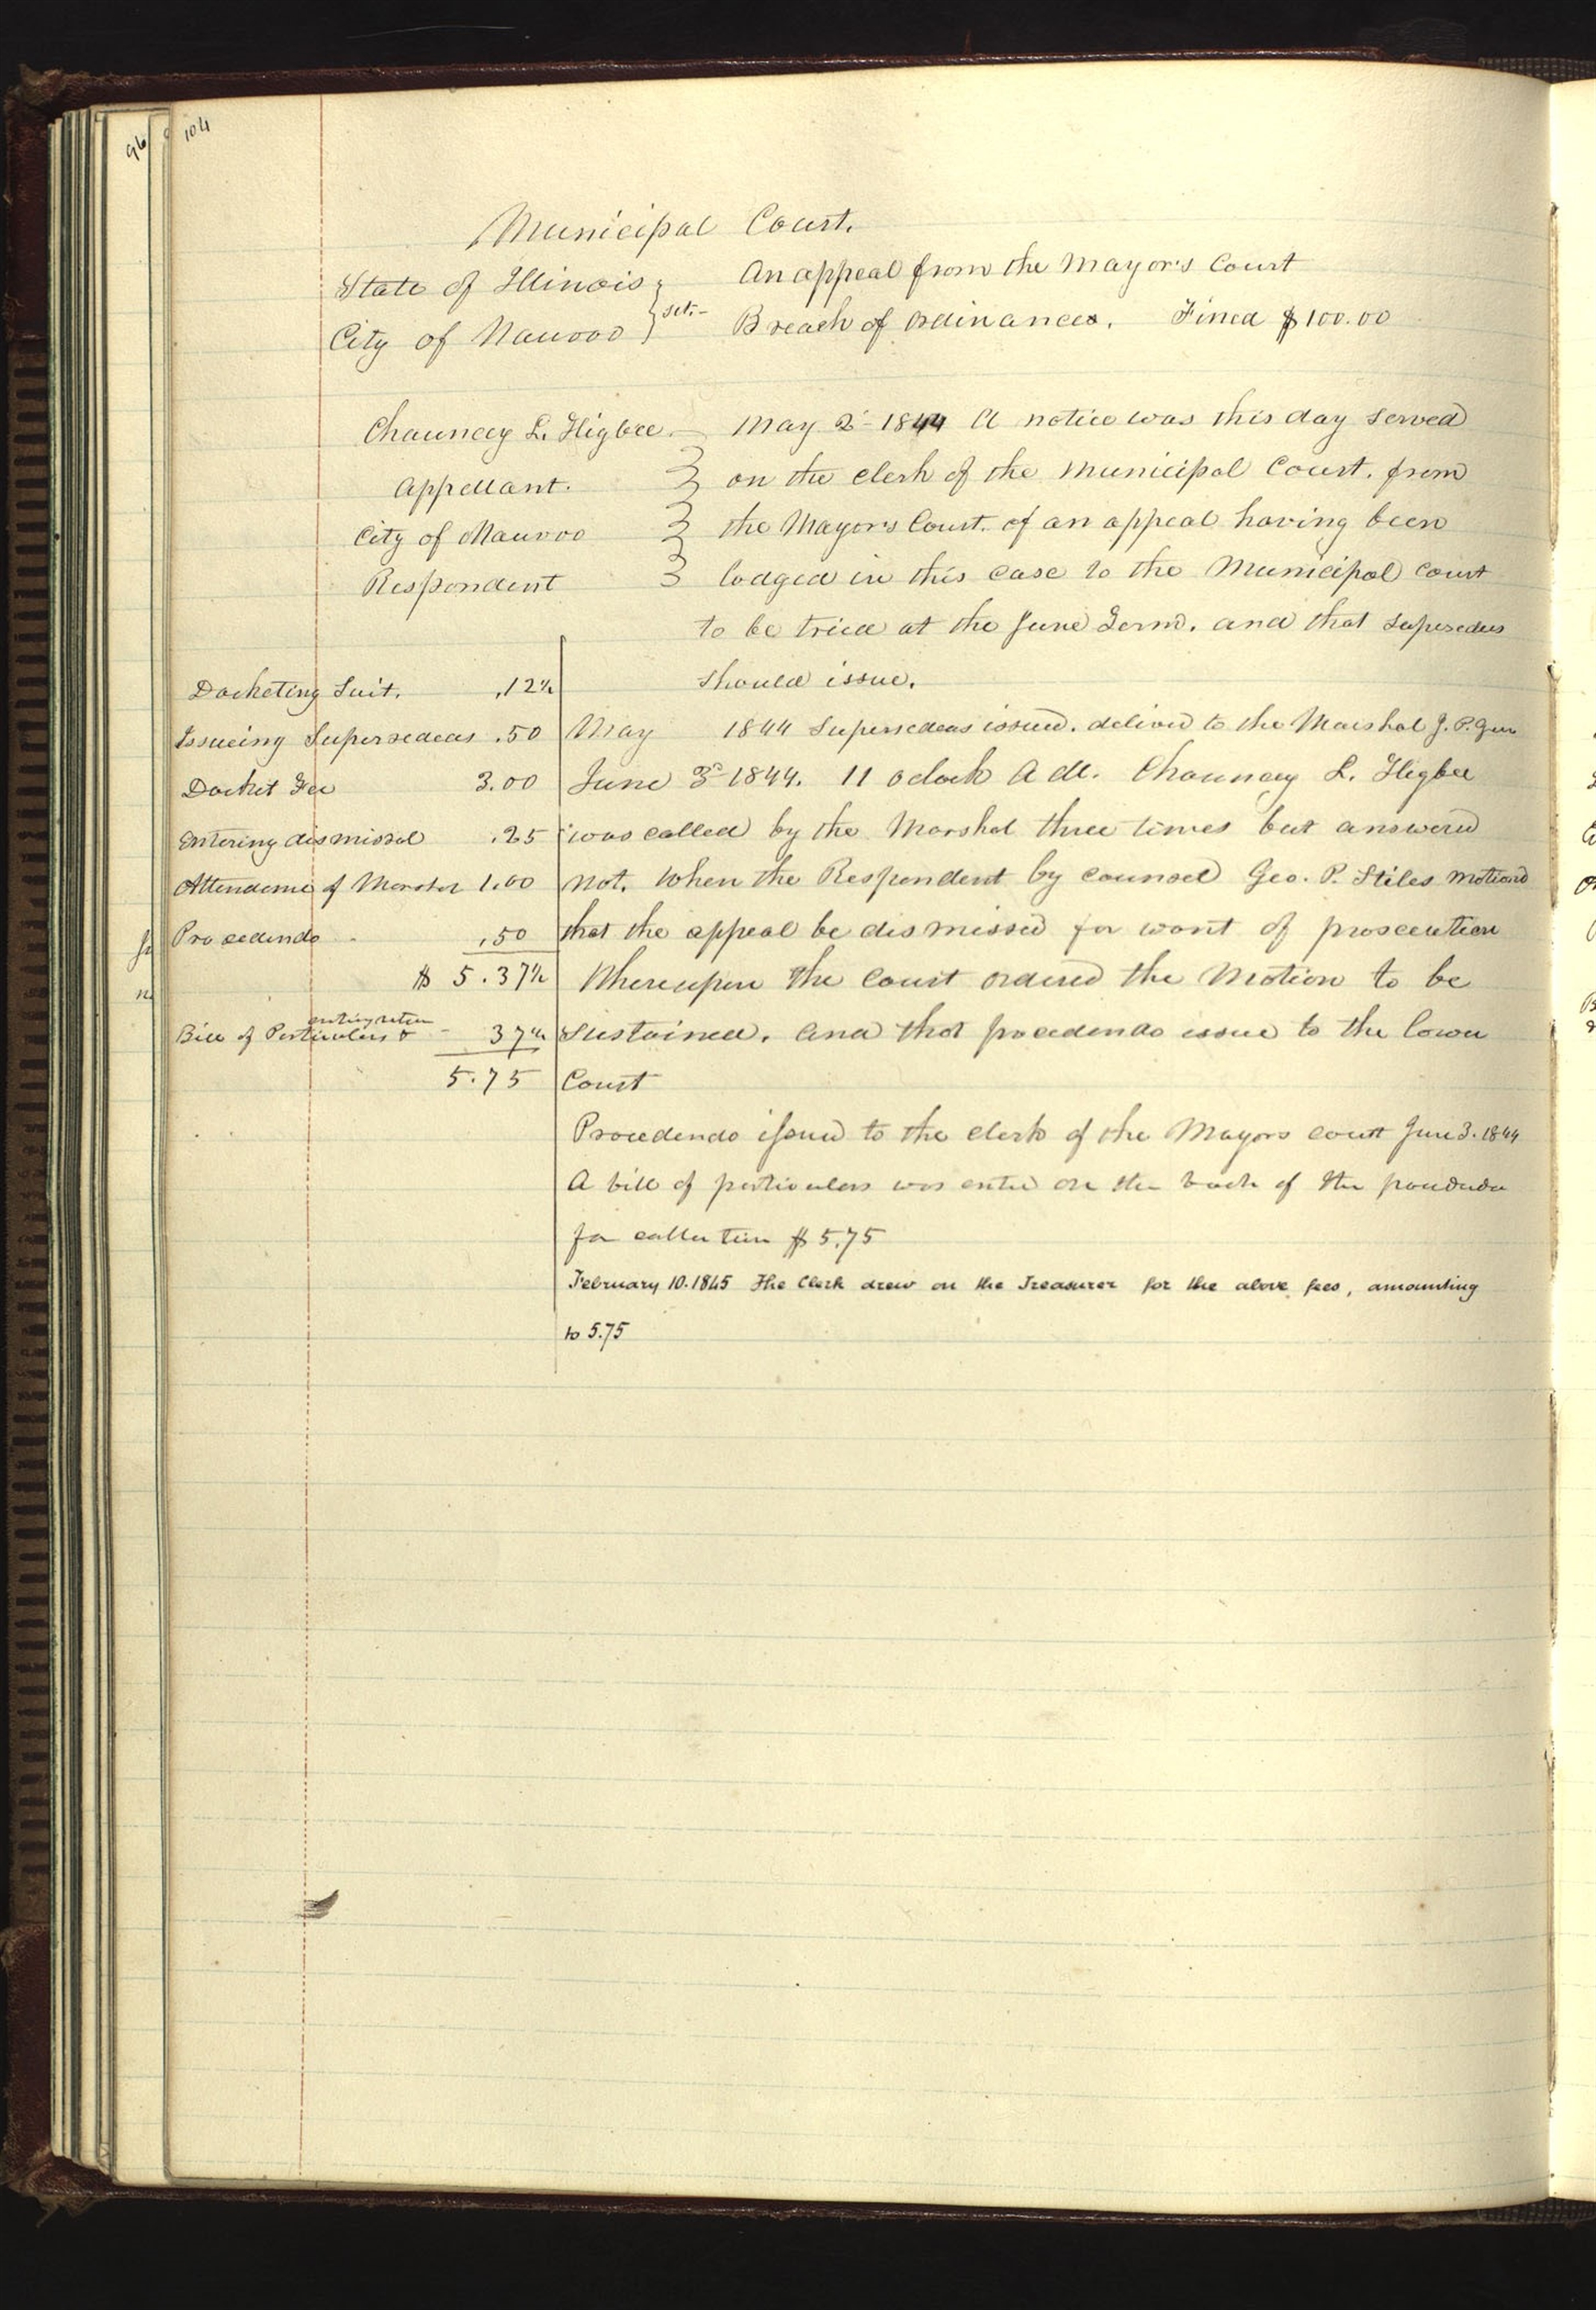 104
96
Municipal Court.
State of Illinois } sct.-
City of Nauvoo
An appeal from the Mayor's Court
Breach of ordinances. Fined $100.00
Chauncey L. Higbee
Appellant.
City of Nauvoo
Respondent
May 2d 1844 A notice was this day served
on the clerk of the Municipal Court. from
the Mayor's Court. of an appeal having been
lodged in this case to the Municipal Court
to be tried at the June Term. and that Supersedeas
should issue.
Docketing Suit. .12½
Issueing Supersedeas .50
Docket Fee 3.00
Entering dismissal .25
Attendance of Marshal 1.00
Procedendo .50
$ 5.37½
Bill of Particulars & entering return - 37½
5.75
May 1844 Supersedeas issued. deliverd to the Marshal J. P. Green
June 3d 1844. 11 oclock A M. Chauncey L. Higbee
was called by the Marshal three times but answered
not. When the Respondent by counsel Geo. P. Stiles motiond
that the appeal be dismissed for want of prosecution
Whereupon the Court ordered the Motion to be
sustained. and that procedendo issue to the lower
Court
Procedendo issued to the clerk of the Mayors court June 3. 1844
A bill of particulars was entered on the back of the procedendo
for collection $5.75
February 10. 1845 The Clerk drew on the Treasurer for the above fees, amounting
to 5.75